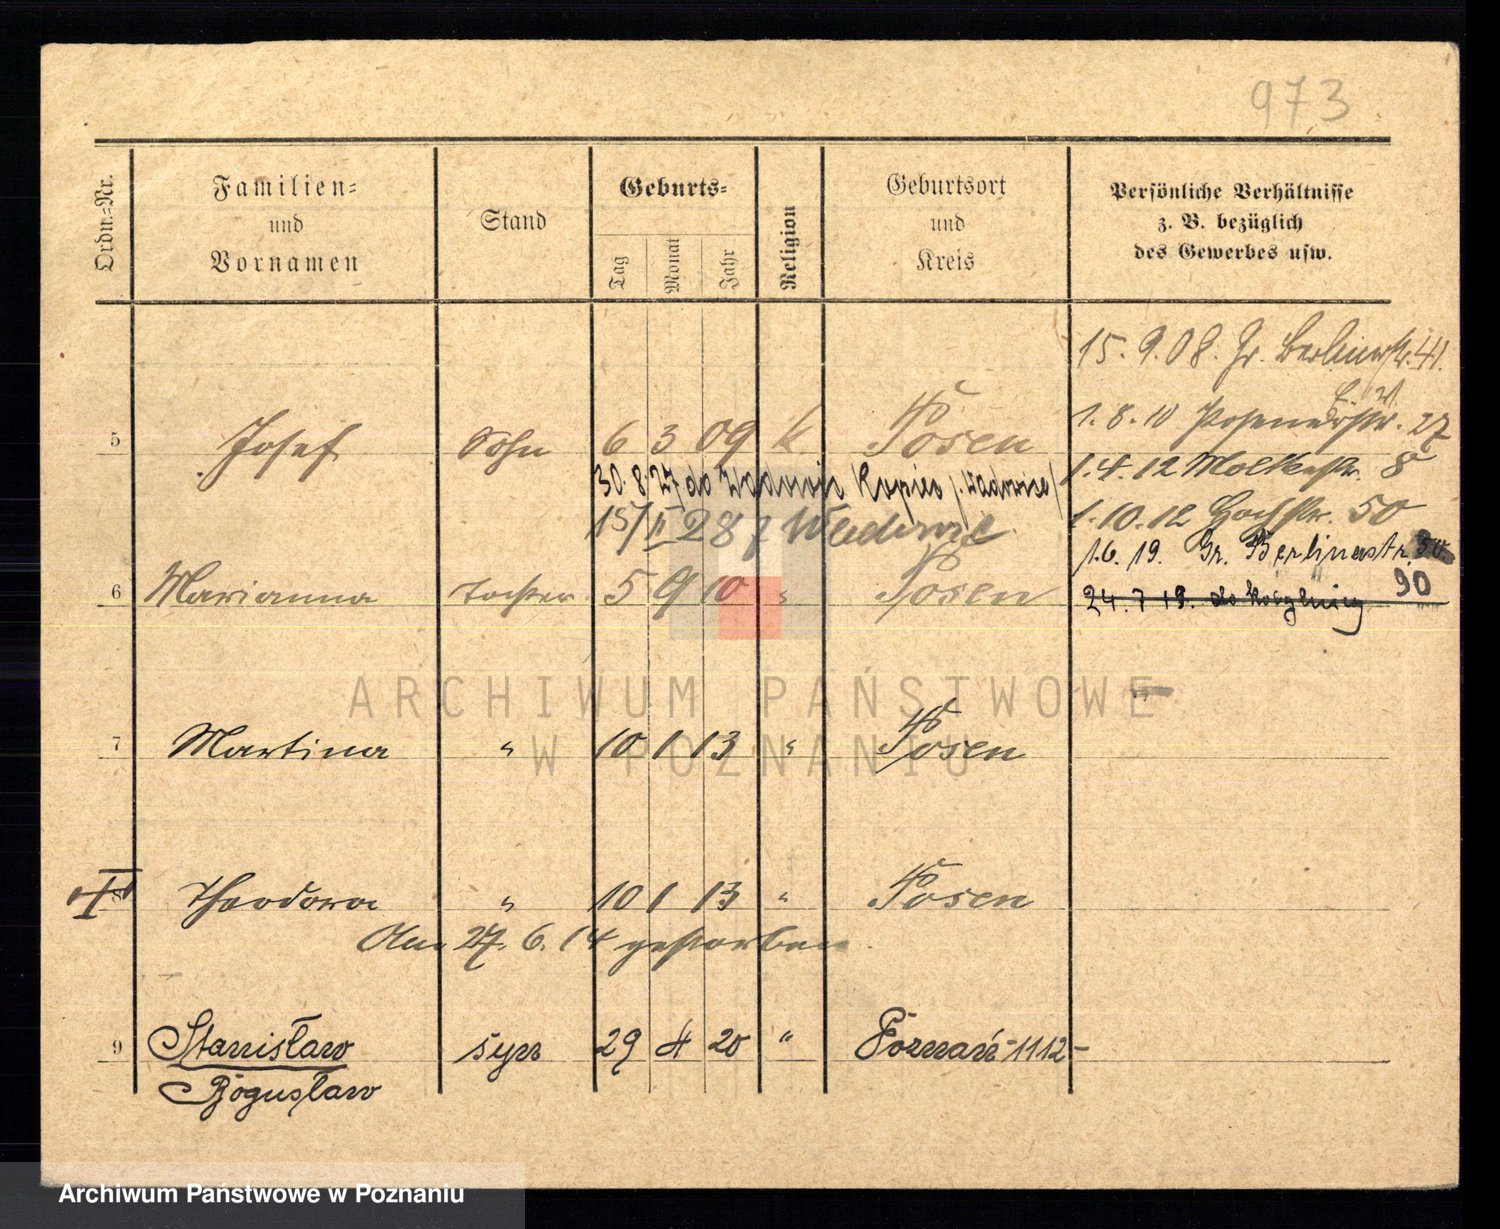 973
Ordn.-Nr.
Familien-
und
Vornamen
Stand
Geburts-
Tag
Monat
Jahr
Religion
Geburtsort
und
Kreis
Persönliche Verhältnisse
z. B. bezüglich
des Gewerbes usw.
15. 9. 08. Gr. Berlinerstr. 41.
1. 8. 10 Posenerstr. 27
5 Josef Sohn 6 3 09 k. Posen
1. 4. 12 Moltkestr. 8
30. 8. 27 do Kopiec /. Wadowice/
1. 10. 12 Hochstr. 50
15/II 28 z
1.6. 19. Gr. Berlinerstr.
90
6 Marianna Tochter 5 9 10 " Posen
24. 7 19. do
ARCHIWUM PAŃSTWOWE
W POZNANIU
7 Martina " 10 1 13 " Posen
8 Theodora " 10 1 13 " Posen
Am 27. 6. 14 gestorben.
9 Stanisław syn 29 4 20 " Poznań -1112-
Bogusław
Archiwum Państwowe w Poznaniu